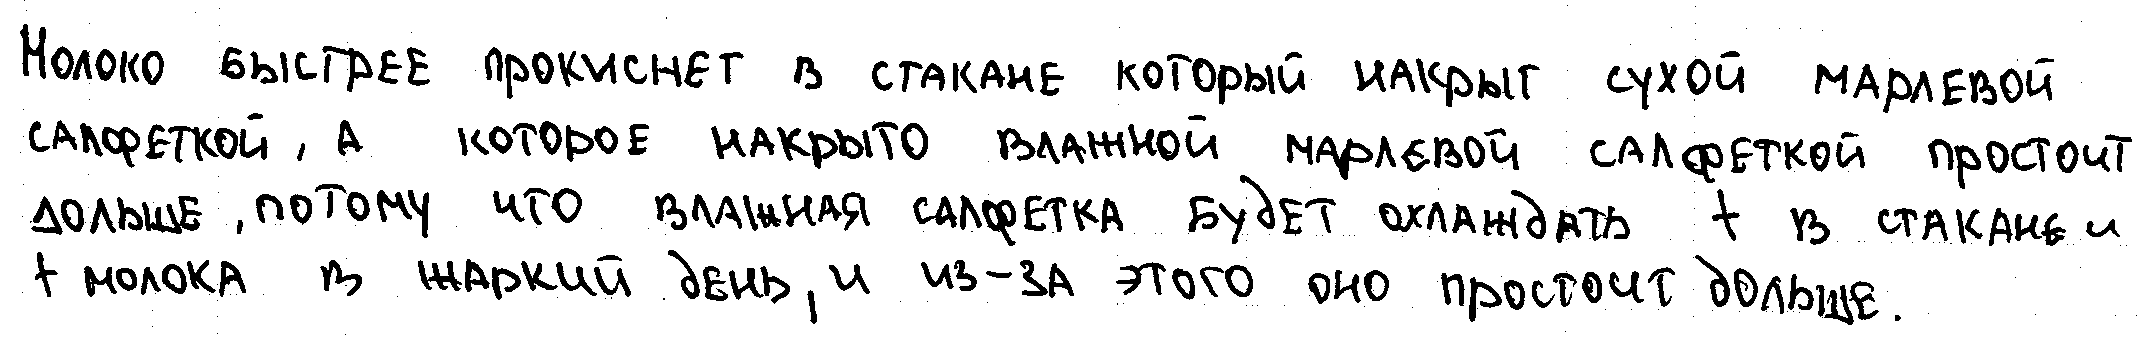 Молоко быстрее прокиснет в стакане который накрыт сухой марлевой
салфеткой, а которое накрыто влажной марлевой салфеткой простоит
дольше, потому что влажная салфетка будет охлаждать t в стакане и
t молока в жаркий день, и из-за этого оно простоит дольше.